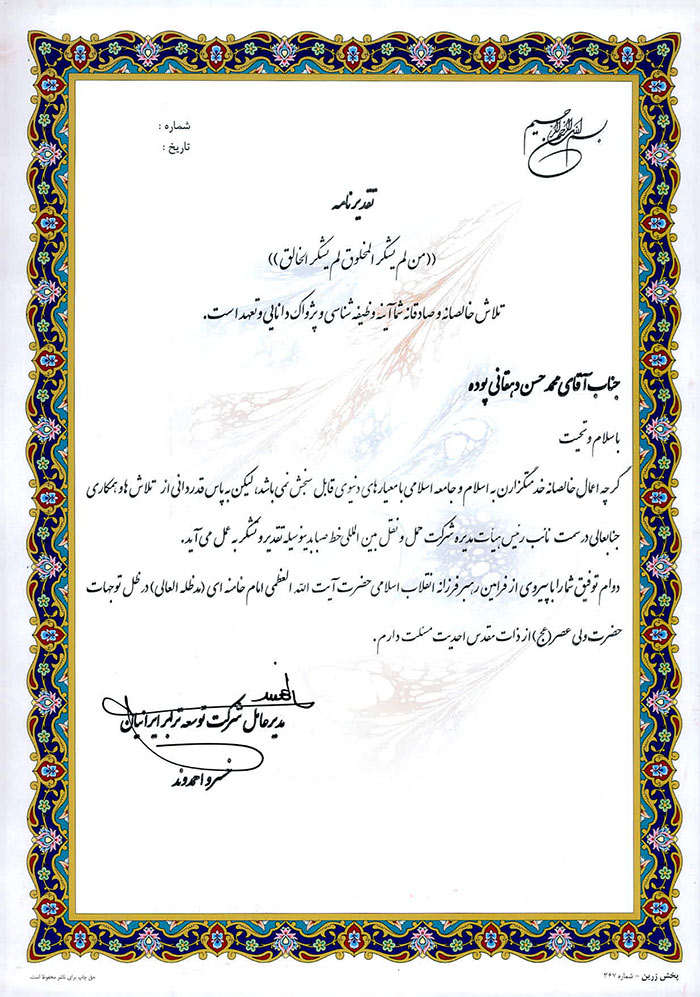 بسم الله الرحمن الرحیم
شماره :
تاریخ :
تقدیرنامه
((من لم یشکر المخلوق لم یشکر الخالق))
تلاش خالصانه و صادقانه شما آینه وظیفه شناسی و پژواک دانایی و تعهد است.
جناب آقای محمد حسن دهقانی پوده
با سلام و تحیت
گرچه اعمال خالصانه خدمتگزارن به اسلام و جامعه اسلامی با معیارهای دنیوی قابل سنجش نمی باشد، لیکن به پاس قدردانی از تلاش ها و همکاری
جنابعالی در سمت نائب رئیس هیأت مدیره شرکت حمل و نقل بین المللی خط صبا بدینوسیله تقدیر و تشکر به عمل می آید.
دوام توفیق شما را با پیروی از فرامین رهبر فرزانه انقلاب اسلامی حضرت آیت الله العظمی امام خامنه ای (مدظله العالی) در ظل توجهات
حضرت ولی عصر (عج) از ذات مقدس احدیت مسئلت دارم.
مدیرعامل شرکت توسعه ترابر ایرانیان
خسرو احمدوند
پخش زرین - شماره ۳۴۷
حق چاپ برای ناشر محفوظ است.